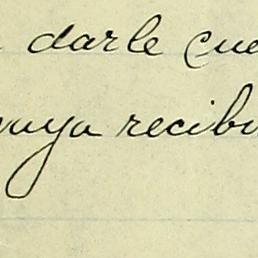 darle cue
vaya recibi